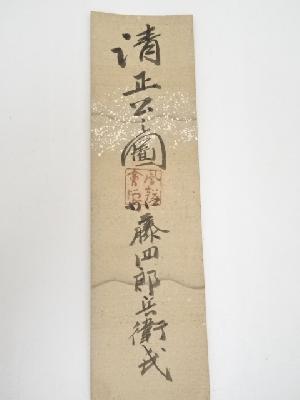 清正公之圖
加藤四郎兵衛氏